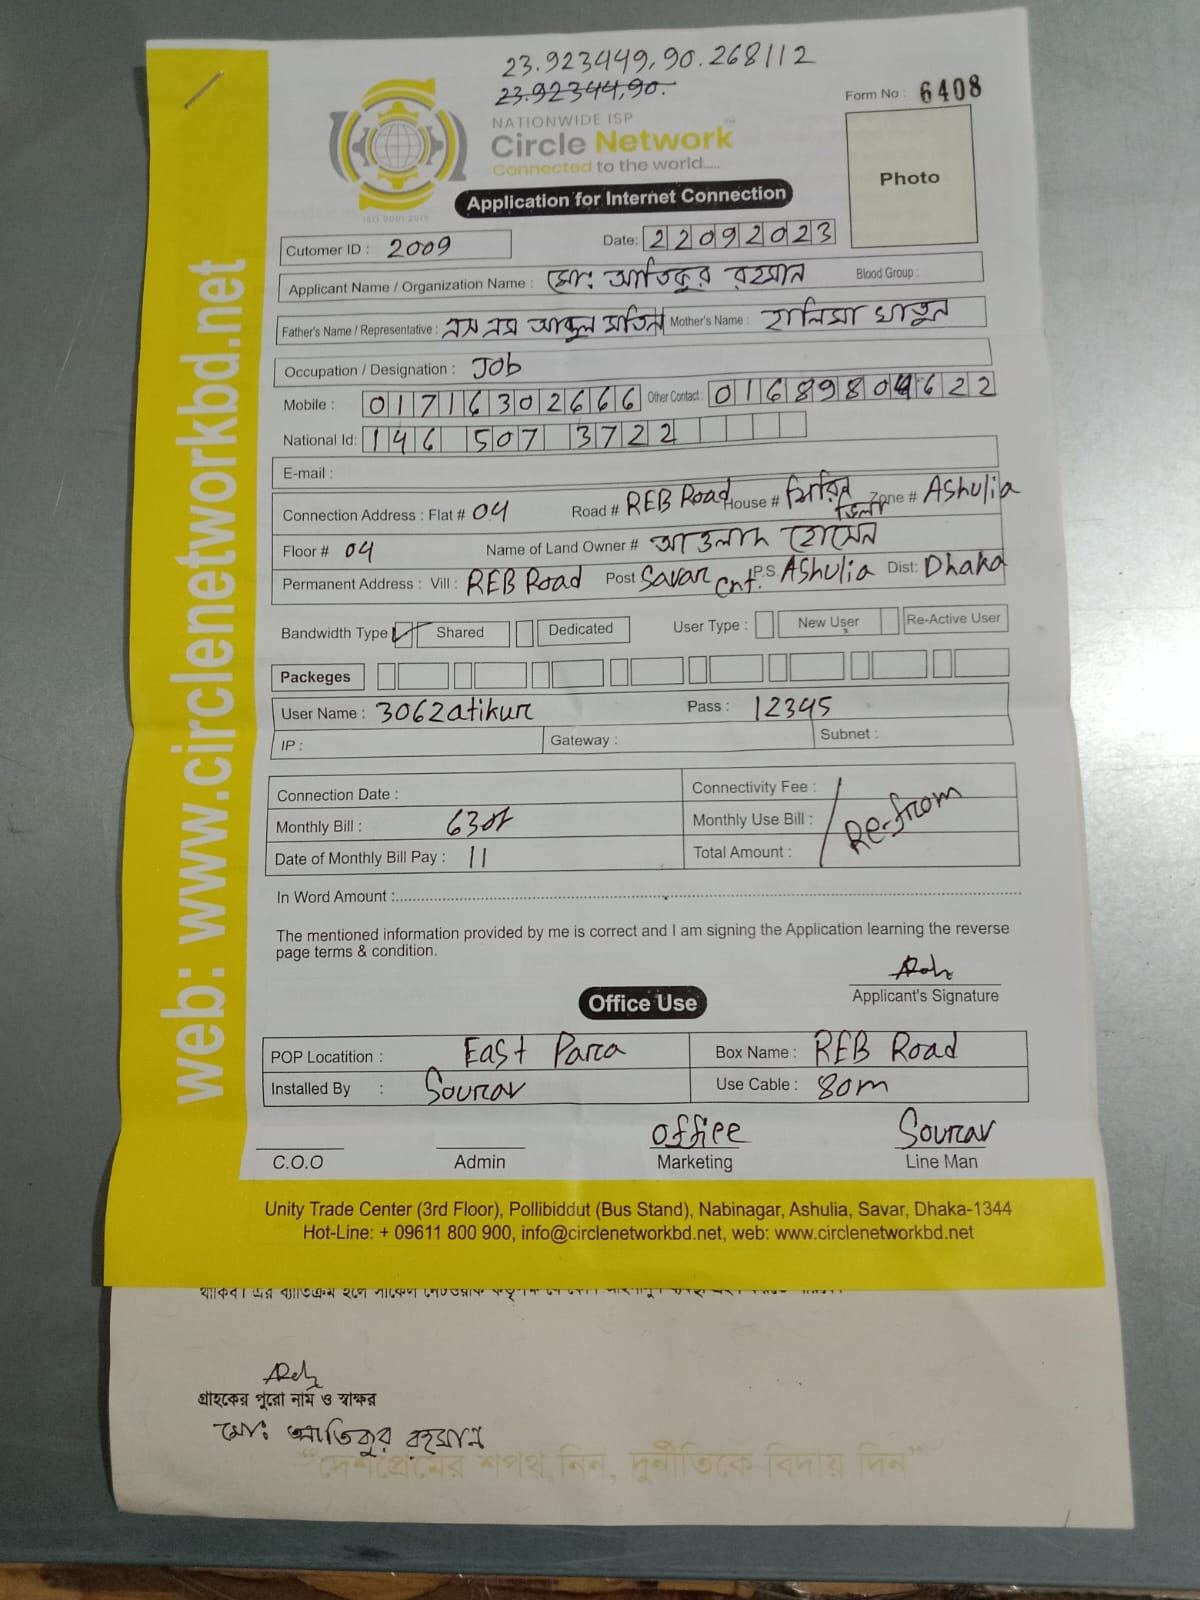 23.923449,90.268112
23.92344,90.
Form No : 6408
NATIONWIDE ISP
Circle Network
Connected to the world.....
ISO 9001:2015
Photo
Application for Internet Connection
Cutomer ID : 2009
Date: 22092023
Applicant Name / Organization Name : মোঃ আতিকুর রহমান Blood Group :
Father's Name / Representative : এস এম আব্দুল মতিন Mother's Name : হালিমা খাতুন
Occupation / Designation : Job
Mobile : 01716302666 Other Contact : 01689804622
National Id: 146 507 3722
E-mail :
Connection Address : Flat # 04 Road # REB Road House # শিরিন ভিলা Zone # Ashulia
Floor # 04 Name of Land Owner # আওলাদ হোসেন
Permanent Address : Vill : REB Road Post Savar Cnt. P.S. Ashulia Dist: Dhaka
Bandwidth Type Shared Dedicated User Type : New User Re-Active User
Packeges
User Name : 3062atikur Pass : 12345
IP : Gateway : Subnet :
Connection Date : Connectivity Fee :
Monthly Bill : 630/- Monthly Use Bill : Re-from
Date of Monthly Bill Pay : 11 Total Amount :
In Word Amount :
The mentioned information provided by me is correct and I am signing the Application learning the reverse
page terms & condition.
Applicant's Signature
Office Use
POP Locatition : East Para Box Name : REB Road
Installed By : Sourav Use Cable : 80m
office Sourav
C.O.O Admin Marketing Line Man
Unity Trade Center (3rd Floor), Pollibiddut (Bus Stand), Nabinagar, Ashulia, Savar, Dhaka-1344
Hot-Line: + 09611 800 900, info@circlenetworkbd.net, web: www.circlenetworkbd.net
web: www.circlenetworkbd.net
গ্রাহকের পুরো নাম ও স্বাক্ষর
মোঃ আতিকুর রহমান
“দেশপ্রেমের শপথ নিন, দুর্নীতিকে বিদায় দিন”